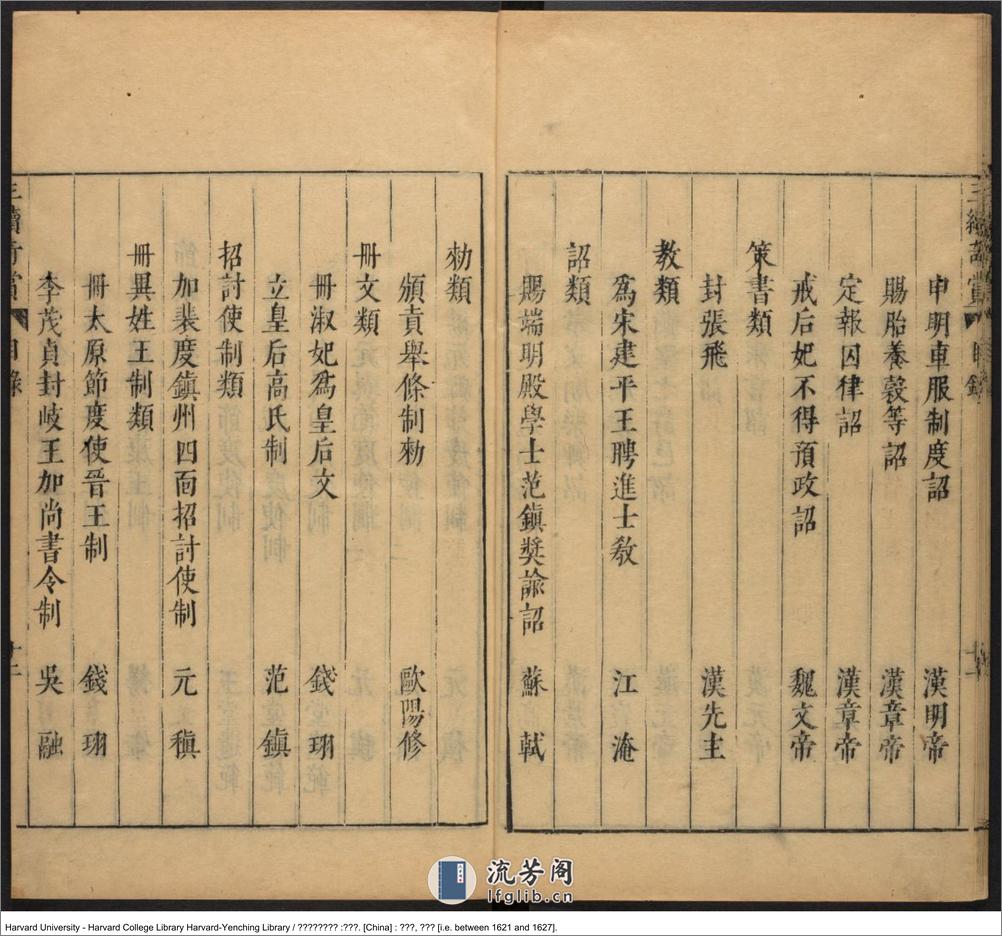 申明車服制度詔 漢明帝
賜胎養穀等詔 漢章帝
定報囚律詔 漢章帝
戒后妃不得預政詔 魏文帝
策書類
封張飛 漢先主
教類
為宋建平王聘進士教 江淹
詔類
賜端明殿學士范鎮奬諭詔 蘇軾
勑類
頒貢舉條制勑 歐陽修
冊文類
冊淑妃為皇后文 錢珝
立皇后高氏制 范鎮
招討使制類
加裴度鎮州四面招討使制 元稹
冊異姓王制類
冊太原節度使晉王制 錢珝
李茂貞封岐王加尚書令制 吳融
流芳阁
lfglib.cn
Harvard University - Harvard College Library Harvard-Yenching Library / ???????? :???. [China] : ???, ??? [i.e. between 1621 and 1627].